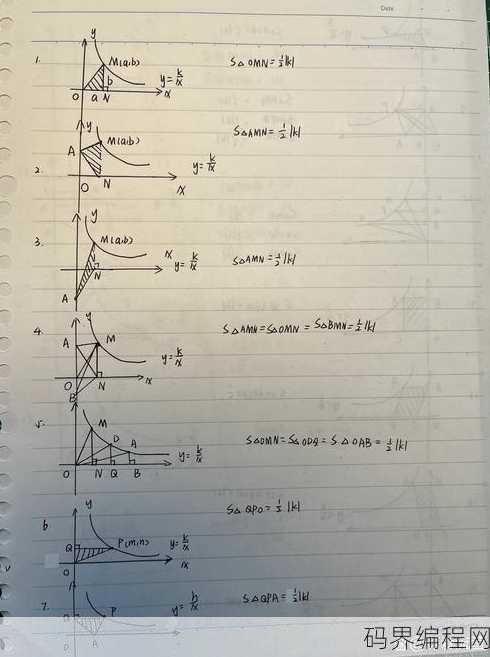 Date
1.
y
M(a,b)
b
y = k/x
O a N x
S△OMN = 1/2|k|
2.
y
A
M(a,b)
y = k/x
O N x
S△AMN = 1/2|k|
3.
y
M(a,b)
x
y = k/x
N
A
S△AMN = 1/2|k|
4.
y
A M
y = k/x
O N x
B
S△AMN = S△OMN = S△BMN = 1/2|k|
5.
M
D A
y = k/x
O N Q B
S△OMN = S△ODQ = S△OAB = 1/2|k|
6
y
Q P(m,n)
y = k/x
O x
S△QPO = 1/2|k|
7.
P
A
S△QPA = 1/2|k|
码界编程网